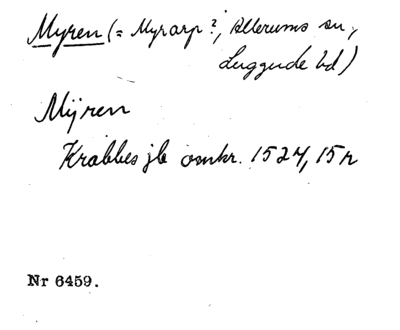 Myren (= Myrarp?, Allerums sn,
Luggude hd)
Mÿren
Krabbes jb omkr. 1524, 15 r
Nr 6459.